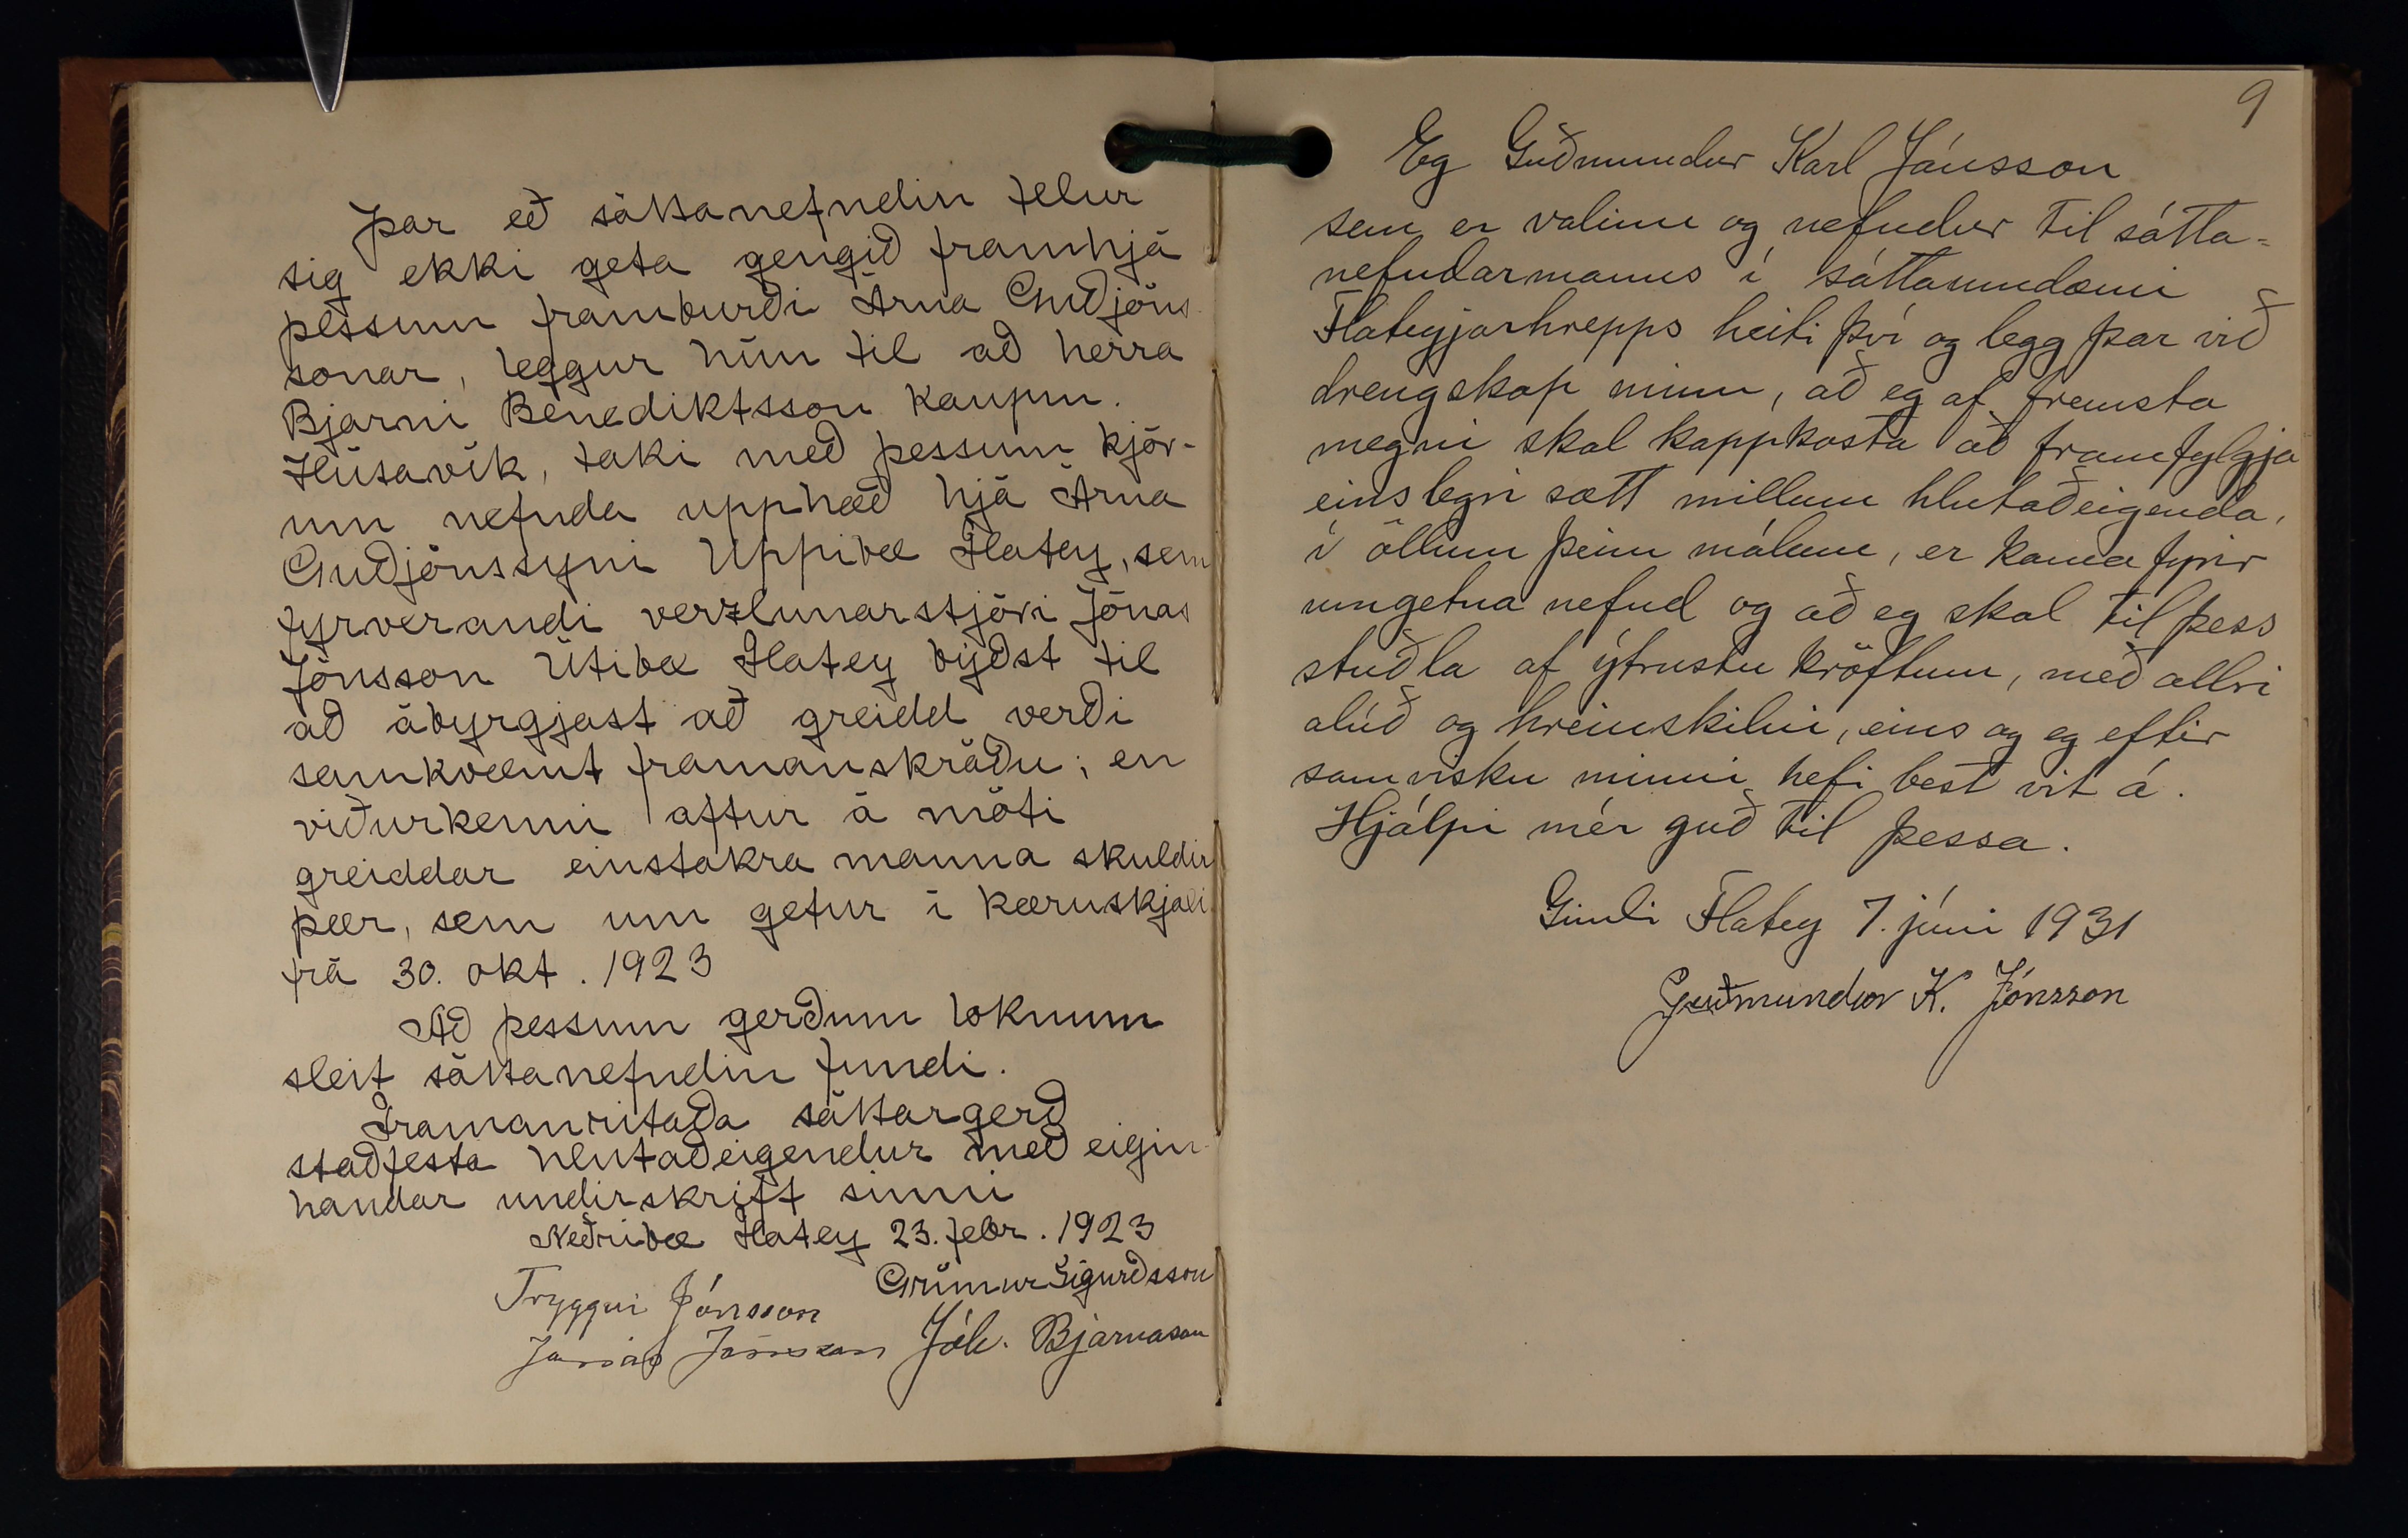 Þar eð sáttanefndin telur
sig ekki geta gengið framhjá
þessum framburði Árna Guðjóns-
sonar, leggur hún til að herra
Bjarni Benediktsson kaupm.
Húsavík, taki með þessum kjör-
um nefnda upphæð hjá Árna
Guðjónssyni Uppibæ Flatey, sem
fyrverandi verzlunarstjóri Jónas
Jónsson Útibæ Flatey býðst til
að ábyrgjast að greidd verði
samkvæmt framanskráðu; en
viðurkenni aftur á móti
greiddar einstakra manna skuldir
þær, sem um getur í kæruskjali
frá 30. okt. 1923
Að þessum gerðum loknum
sleit sáttanefndin fundi.
Framanritaða sáttargerð
staðfesta hlutaðeigendur með eigin-
handar undirskrift sinni
Neðribæ Flatey 23. febr. 1923
Grímur Sigurðsson
Tryggvi Jónsson
Jónas Jónsson Jóh. Bjarnason
9
Eg Guðmundur Karl Jónsson
sem er valinn og nefndur til sátta=
nefndarmanns í sáttaumdæmi
Flateyjarhrepps heiti því og legg þar við
drengskap minn, að eg af fremsta
megni skal kappkosta að framfylgja
einslegri sætt millum hlutaðeigenda,
í öllum þeim málum, er koma fyrir
umgetna nefnd og að eg skal til þess
stuðla af ýtrustu kröftum, með allri
alúð og hreinskilni, eins og eg eftir
samvisku minni hefi best vit á.
Hjálpi mér guð til þessa.
Gimli Flatey 7. júní 1931
Guðmundur K. Jónsson